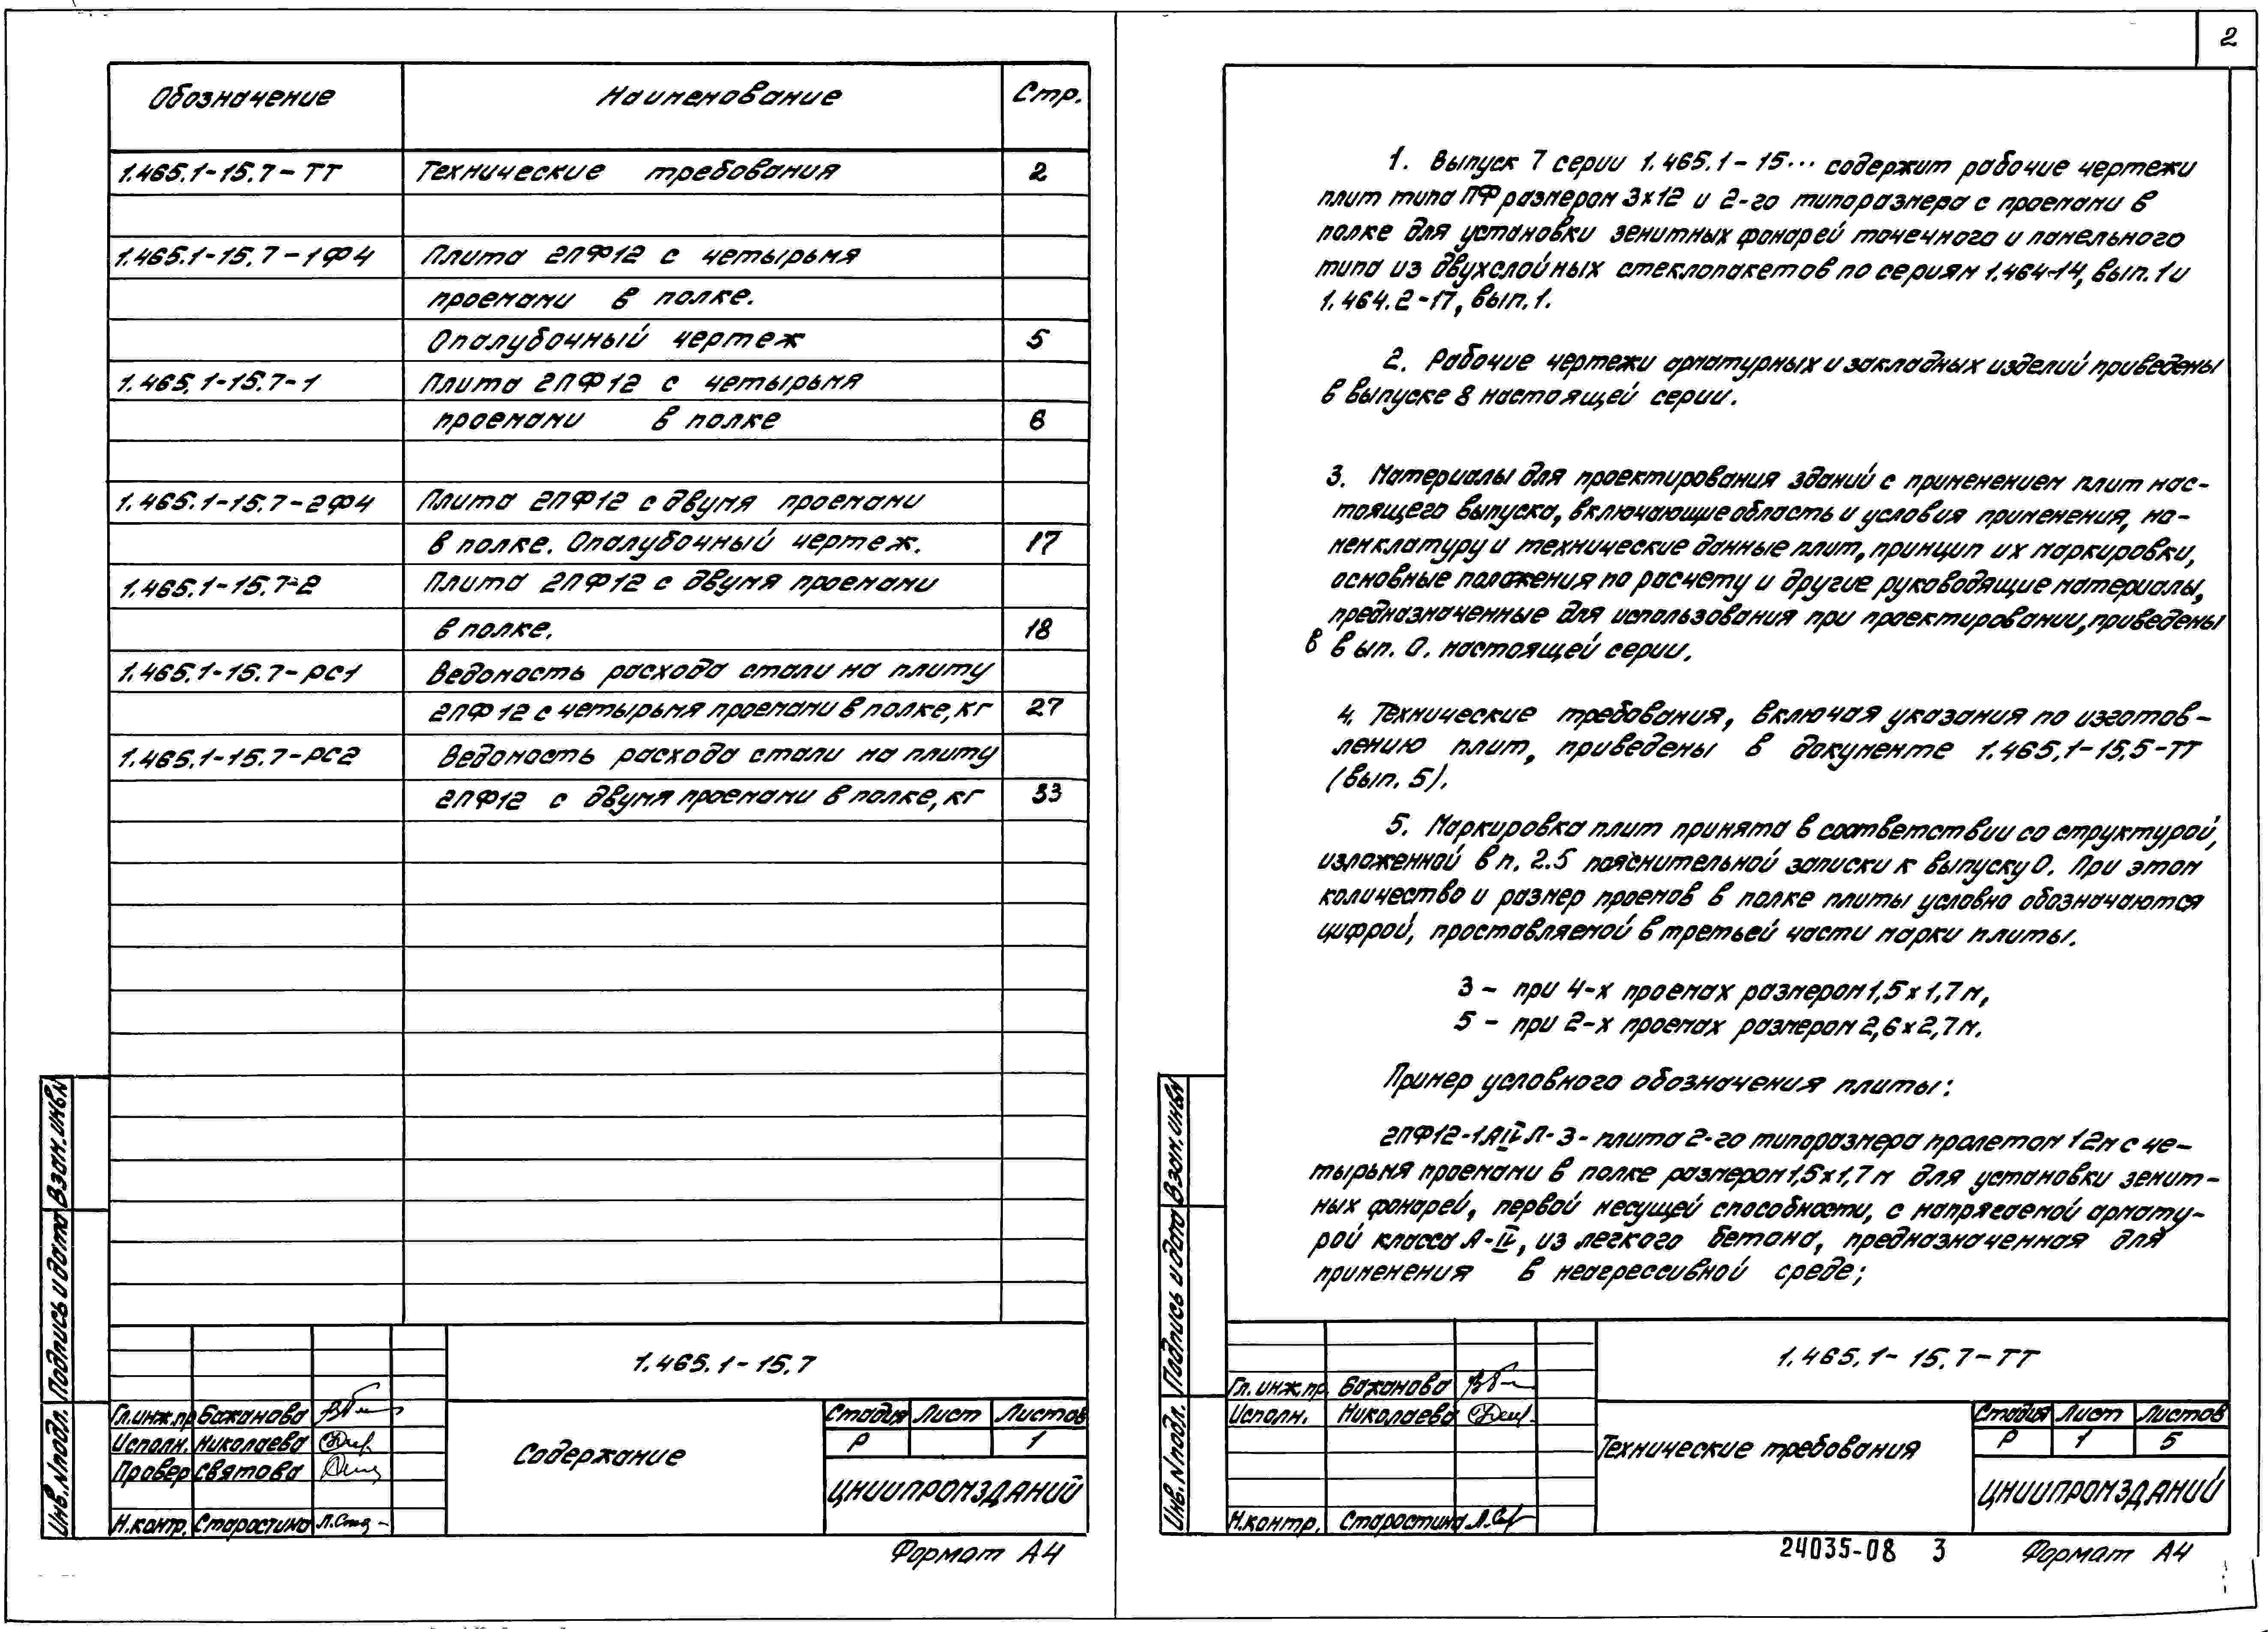 Обозначение Наименование Стр.
1.465.1-15.7-ТТ Технические требования 2
1.465.1-15.7-1Ф4 Плита 2ПФ12 с четырьмя
проемами в полке.
Опалубочный чертеж 5
1.465.1-15.7-1 Плита 2ПФ12 с четырьмя
проемами в полке 6
1.465.1-15.7-2Ф4 Плита 2ПФ12 с двумя проемами
в полке. Опалубочный чертеж. 17
1.465.1-15.7-2 Плита 2ПФ12 с двумя проемами
в полке. 18
1.465.1-15.7-РС1 Ведомость расхода стали на плиту
2ПФ12 с четырьмя проемами в полке, кг 27
1.465.1-15.7-РС2 Ведомость расхода стали на плиту
2ПФ12 с двумя проемами в полке, кг 33
Взам. инв. N
Подпись и дата
Инв. N подл.
1.465.1-15.7
Гл. инж. пр. Бажанова
Исполн. Николаева
Провер Святова
Н. контр. Старостина
Содержание
Стадия Лист Листов
Р 1
ЦНИИПРОМЗДАНИЙ
Формат А4
2
1. Выпуск 7 серии 1.465.1-15... содержит рабочие чертежи
плит типа ПФ размером 3х12 и 2-го типоразмера с проемами в
полке для установки зенитных фонарей точечного и панельного
типа из двухслойных стеклопакетов по сериям 1.464-14, вып. 1 и
1.464.2-17, вып. 1.
2. Рабочие чертежи арматурных и закладных изделий приведены
в выпуске 8 настоящей серии.
3. Материалы для проектирования зданий с применением плит нас-
тоящего выпуска, включающие область и условия применения, но-
менклатуру и технические данные плит, принцип их маркировки,
основные положения по расчету и другие руководящие материалы,
предназначенные для использования при проектировании, приведены
в вып. 0. настоящей серии.
4. Технические требования, включая указания по изготов-
лению плит, приведены в документе 1.465.1-15.5-ТТ
(вып. 5).
5. Маркировка плит принята в соответствии со структурой,
изложенной в п. 2.5 пояснительной записки к выпуску 0. При этом
количество и размер проемов в полке плиты условно обозначаются
цифрой, проставляемой в третьей части марки плиты.
3 - при 4-х проемах размером 1,5х1,7м,
5 - при 2-х проемах размером 2,6х2,7м.
Пример условного обозначения плиты:
2ПФ12-1АIVЛ-3- плита 2-го типоразмера пролетом 12м с че-
тырьмя проемами в полке размером 1,5х1,7м для установки зенит-
ных фонарей, первой несущей способности, с напрягаемой армату-
рой класса А-IV, из легкого бетона, предназначенная для
применения в неагрессивной среде;
Взам. инв. N
Подпись и дата
Инв. N подл.
1.465.1-15.7-ТТ
Гл. инж. пр. Бажанова
Исполн. Николаева
Н. контр. Старостина
Технические требования
Стадия Лист Листов
Р 1 5
ЦНИИПРОМЗДАНИЙ
24035-08 3 Формат А4